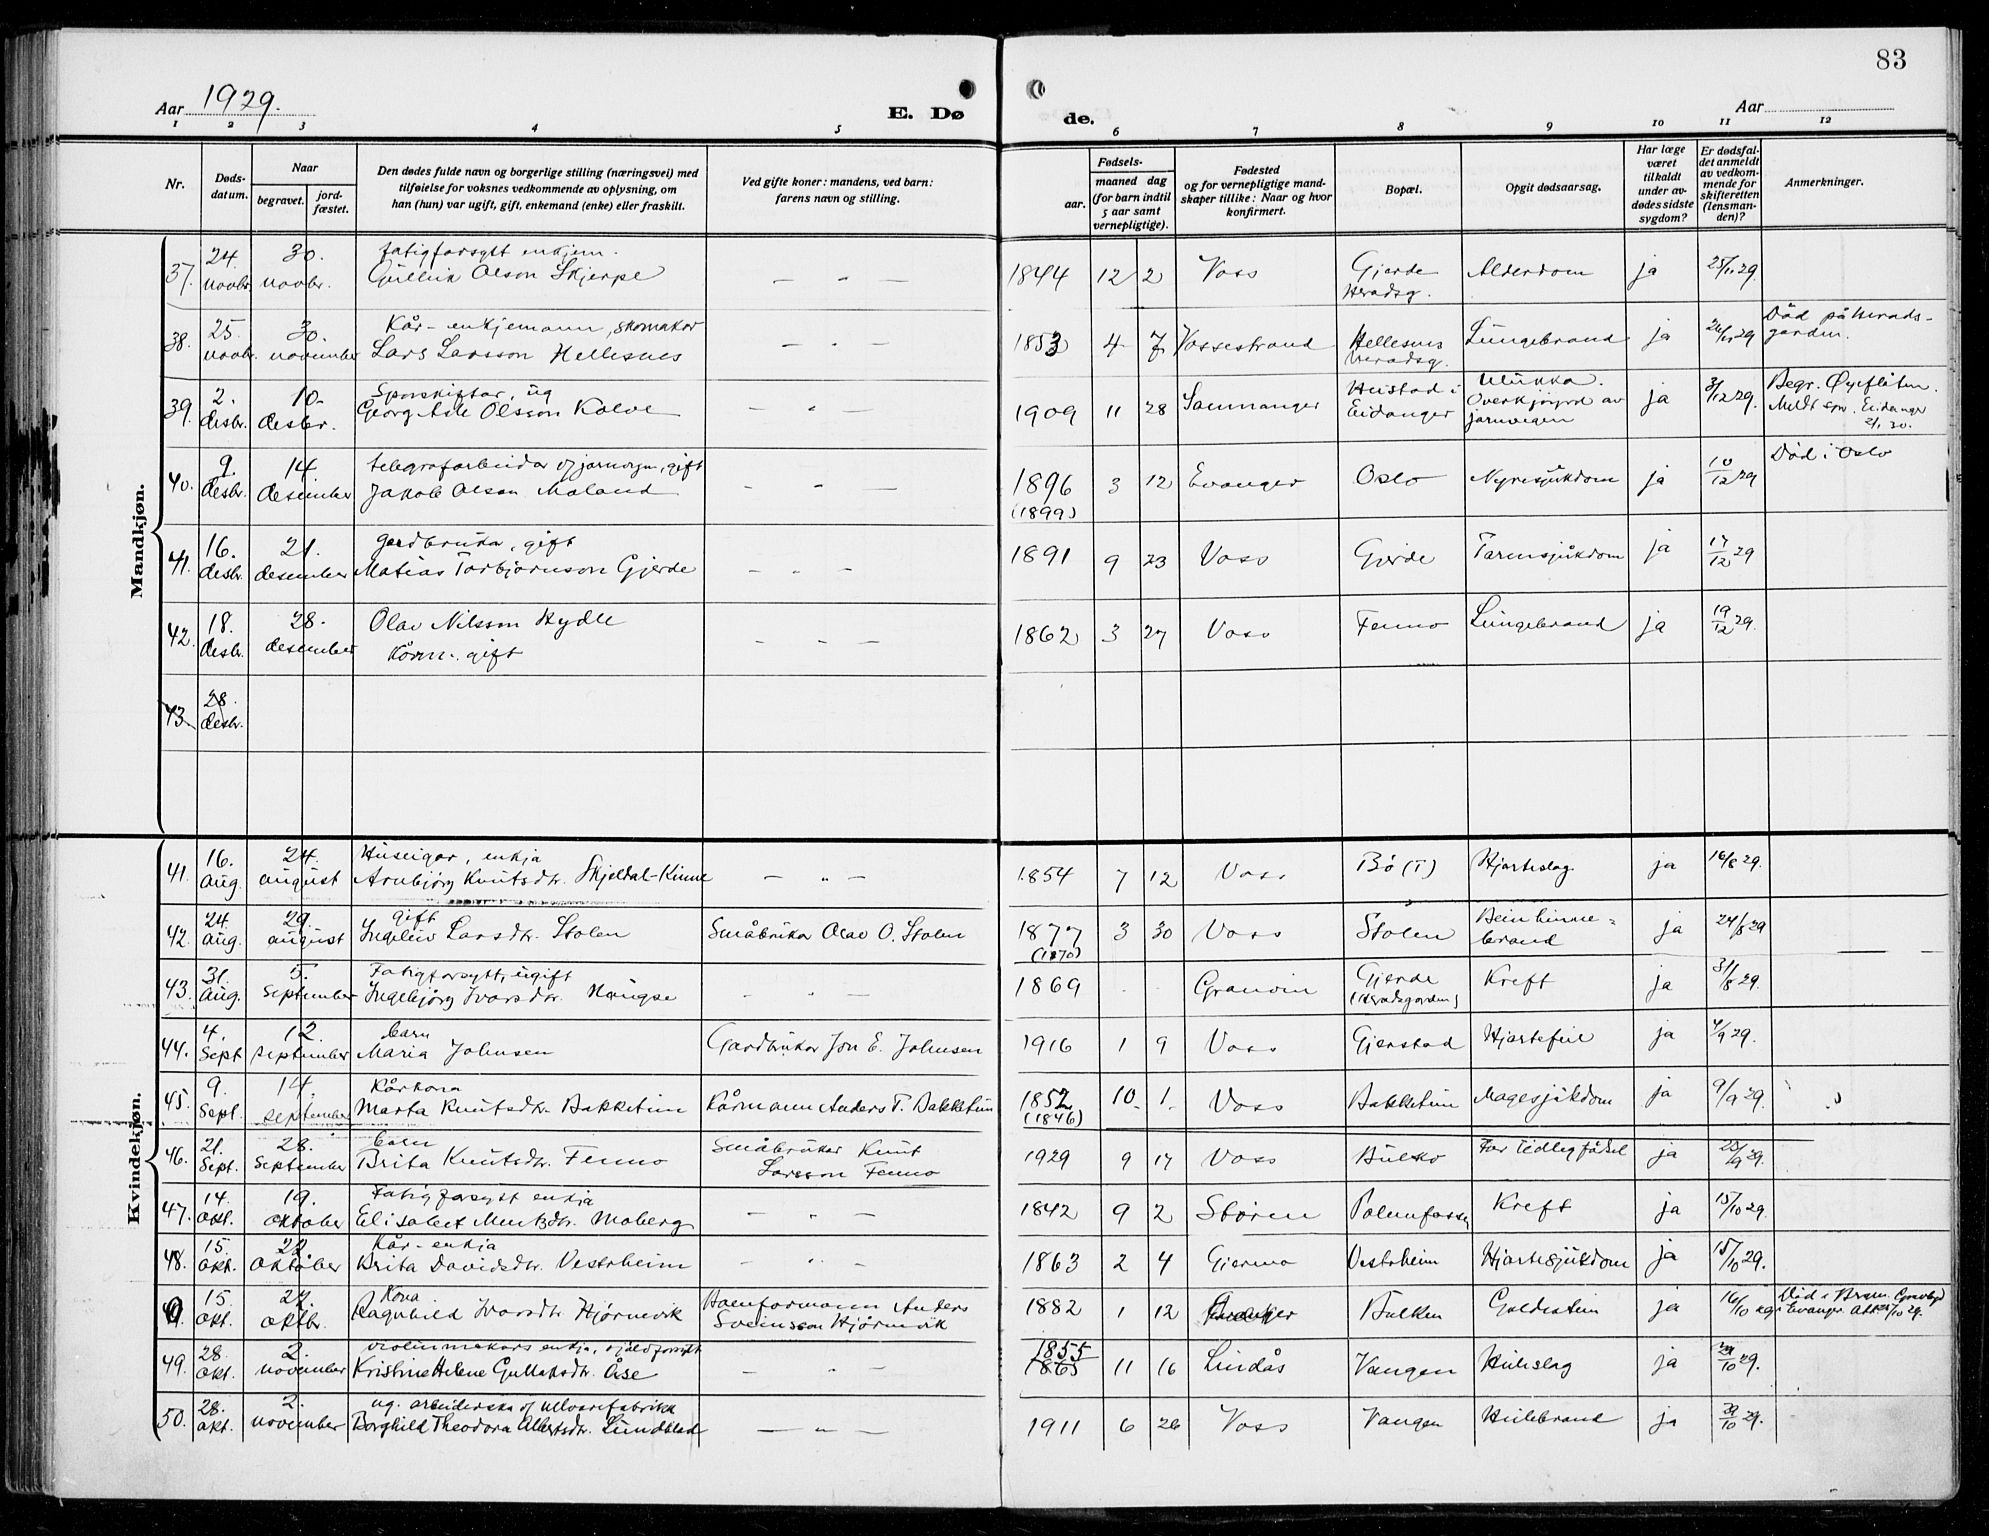 83
Aar 1929.
E. Døde.
Aar
1 2 3 4 5 6 7 8 9 10 11 12
Nr.
Døds-datum.
Naar
begravet.
jord-fæstet.
Den dødes fulde navn og borgerlige stilling (næringsvei) med
tilføielse for voksnes vedkommende av oplysning, om
han (hun) var ugift, gift, enkemand (enke) eller fraskilt.
Ved gifte koner: mandens, ved barn:
farens navn og stilling.
Fødsels-
aar.
maaned dag
(for barn indtil
5 aar samt
vernepligtige).
Fødested
og for vernepligtige mand-
skaper tillike: Naar og hvor
konfirmert.
Bopæl.
Opgit dødsaarsag.
Har læge
været
tilkaldt
under av-
dødes sidste
sygdom?
Er dødsfal-
det anmeldt
av vedkom-
mende for
skifteretten
(lensman-
den)?
Anmerkninger.
Mandkjøn.
37. 24. novbr. 30. novbr. fatigforsytt enkjem. Gullik Olson Skjerpe — " — 1844 12 2 Voss Gjerde Heradsg. Alderdom ja 25/11 29.
38. 25. novbr. 30. november Kår-enkjemann, skomakar Lars Larsson Hellesnes — " — 1853 4 7 Vossestrand Hellesnes Heradsg. Lungebrand ja 26/11 29 Død på Heradsgarden.
39. 2. desbr. 10. desbr. Sporskiftar, ug Georg Atle Olsson Kolve — " — 1909 11 28 Samnanger Hustad i Eidanger Ulukka. Overkjøyrd av jarnvegen ja 3/12 29. Begr. Øyeflåten. Meldt spr. Eidanger 2/1 30.
40. 9. desbr. 14. desember telegrafarbeidar v/jarnvegn, gift Jakob Olson Møland — " — 1896 (1899) 3 12 Evanger Oslo Nyresjukdom ja 10/12 29 Død i Oslo
41. 16. desbr. 21. desember gardbrukar, gift Matias Torbjørnson Gjerde — " — 1891 9 23 Voss Gjerde Tarmsjukdom ja 17/12 29
42. 18. desbr. 28. desember Olav Nilsson Hydle Kårm. gift — " — 1862 3 27 Voss Fenno Lungebrand ja 19/12 29.
43. 28. desbr.
Kvindekjøn.
41. 16. aug. 24. august Huseigar, enkja Arnbjørg Knutsdtr. Skjeldal-Kinne — " — 1854 7 12 Voss Bø (T) Hjarteslag ja 16/8 29.
42. 24. aug. 29. august gift Ingeleiv Larsdtr. Stolen Småbrukar Olav O. Stolen 1877 (1870) 3 30 Voss Stolen Beinhinnebrand ja 24/8 29
43. 31. aug. 5. september Fatigforsytt, ugift Ingebjørg Ivarsdtr. Haugse — " — 1869 Granvin Gjerde (Heradsgarden) Kreft ja 31/8 29.
44. 4. Sept 12. september barn Maria Johnsen Gardbrukar Jon E. Johnsen 1916 1 9 Voss Gjerstad Hjartefeil ja 4/9 29.
45. 9. Sept. 14. september Kårkona Marta Knutsdtr. Bakketun Kårmann Anders T. Bakketun 1852 (1846) 10 1 Voss Bakketun Magesjukdom ja 9/9 29.
46. 21. Sept. 28. September barn Brita Knutsdtr. Fenno Småbrukar Knut Larsson Fenno 1929 9 17 Voss Bulko For tidleg fødsel ja 23/9 29.
47. 14. okt. 19. oktober Fatigforsytt enkja Elisabet Mentzdtr. Moberg — " — 1842 9 2 Støren Palmafossen Kreft ja 15/10 29.
48. 15. okt. 22. oktober Kår-enkja Brita Davidsdtr. Vestrheim — " — 1863 2 4 Gjerme Vestrheim Hjartesjukdom ja 15/10 29.
15. okt. 22. oktbr. Kona Ragnhild Ivarsdtr. Hjørnevik Anders Sveinsson Hjørnevik 1882 1 12 Bulken Gallestein ja 16/10
49. 28. okt. 2. november violinmakars enkja, sjølvforsytt Kristine Helene Gullaksdtr. Åse — " — 1855 1865 11 16 Lindås Vangen Hjerneslag ja 29/10 29.
50. 28. okt. 2. november ug. arbeiderska v/ ullvarefabrikk Borghild Theodora Albertsdtr. Lundblad — " — 1911 6 26 Voss Vangen ja 29/10 29.